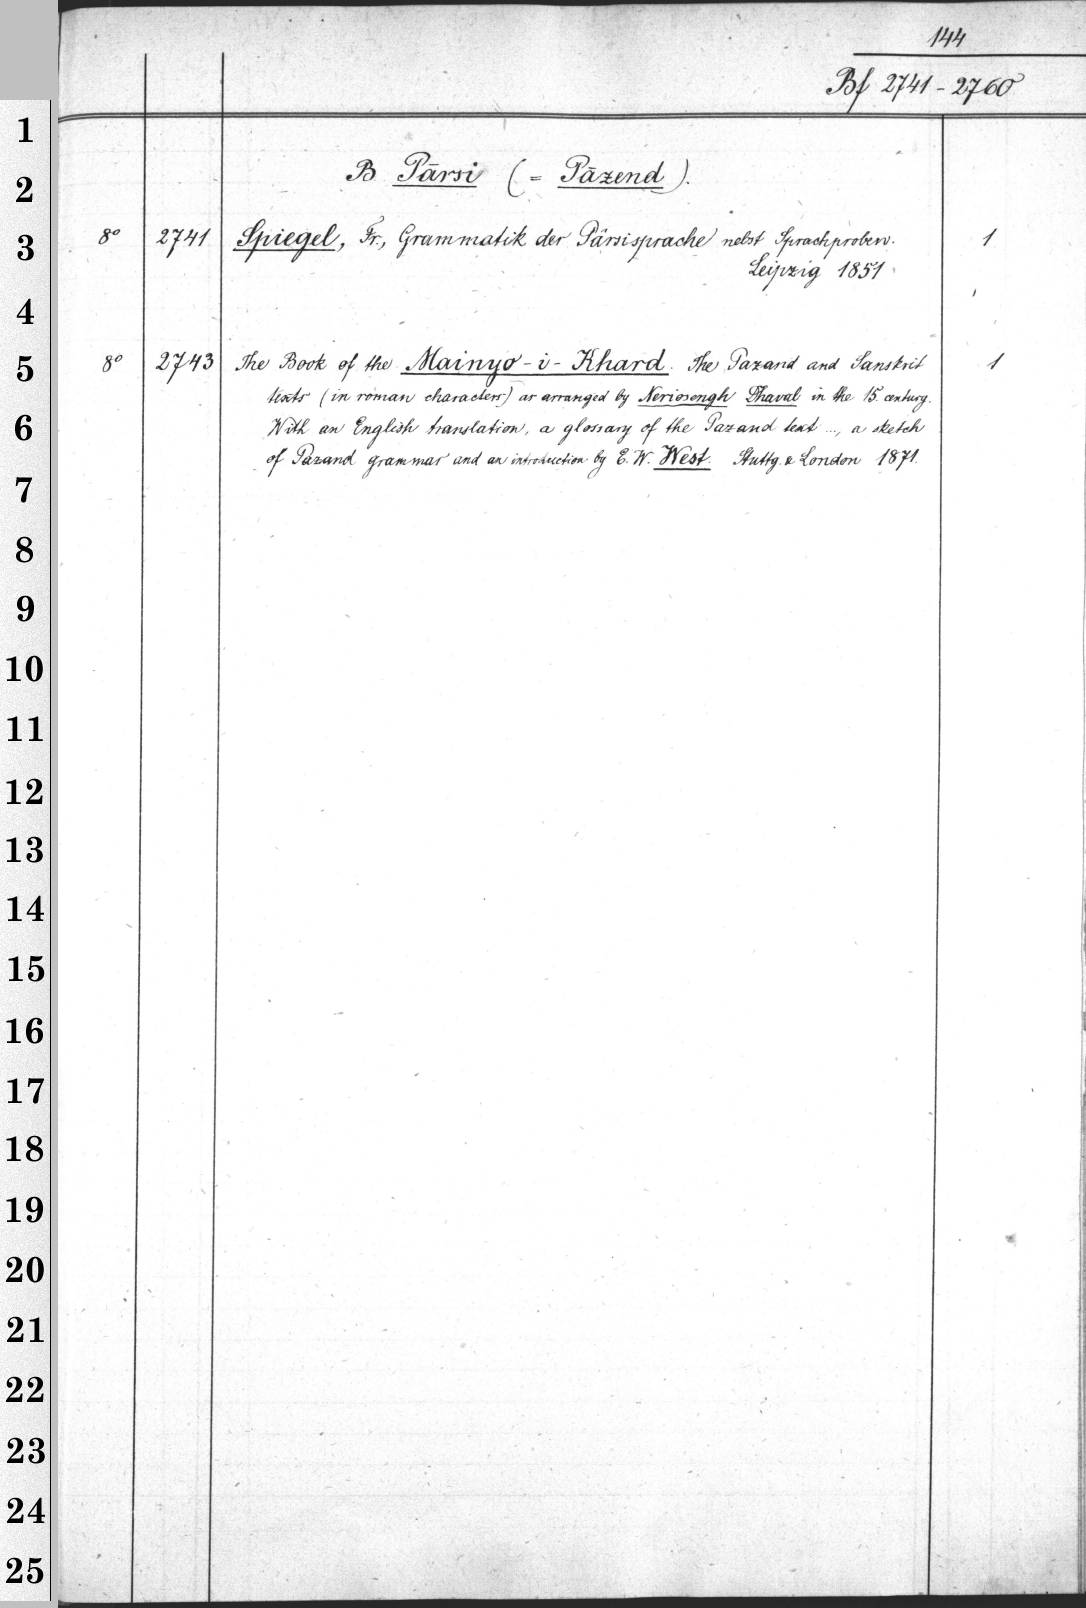 144
Bf 2741 - 2760
B Pārsi (= Pāzend).
8° 2741 Spiegel, Fr., Grammatik der Pârsisprache nebst Sprachproben. 1
Leipzig 1851
8° 2743 The Book of the Mainyo-i-Khard. The Pazand and Sanskrit 1
texts (in roman characters) as arranged by Neriosengh Dhaval in the 15. century.
With an English translation, a glossary of the Pazand text ..., a sketch
of Pazand grammar and an introduction by E. W. West. Stuttg. & London 1871.
1
2
3
4
5
6
7
8
9
10
11
12
13
14
15
16
17
18
19
20
21
22
23
24
25